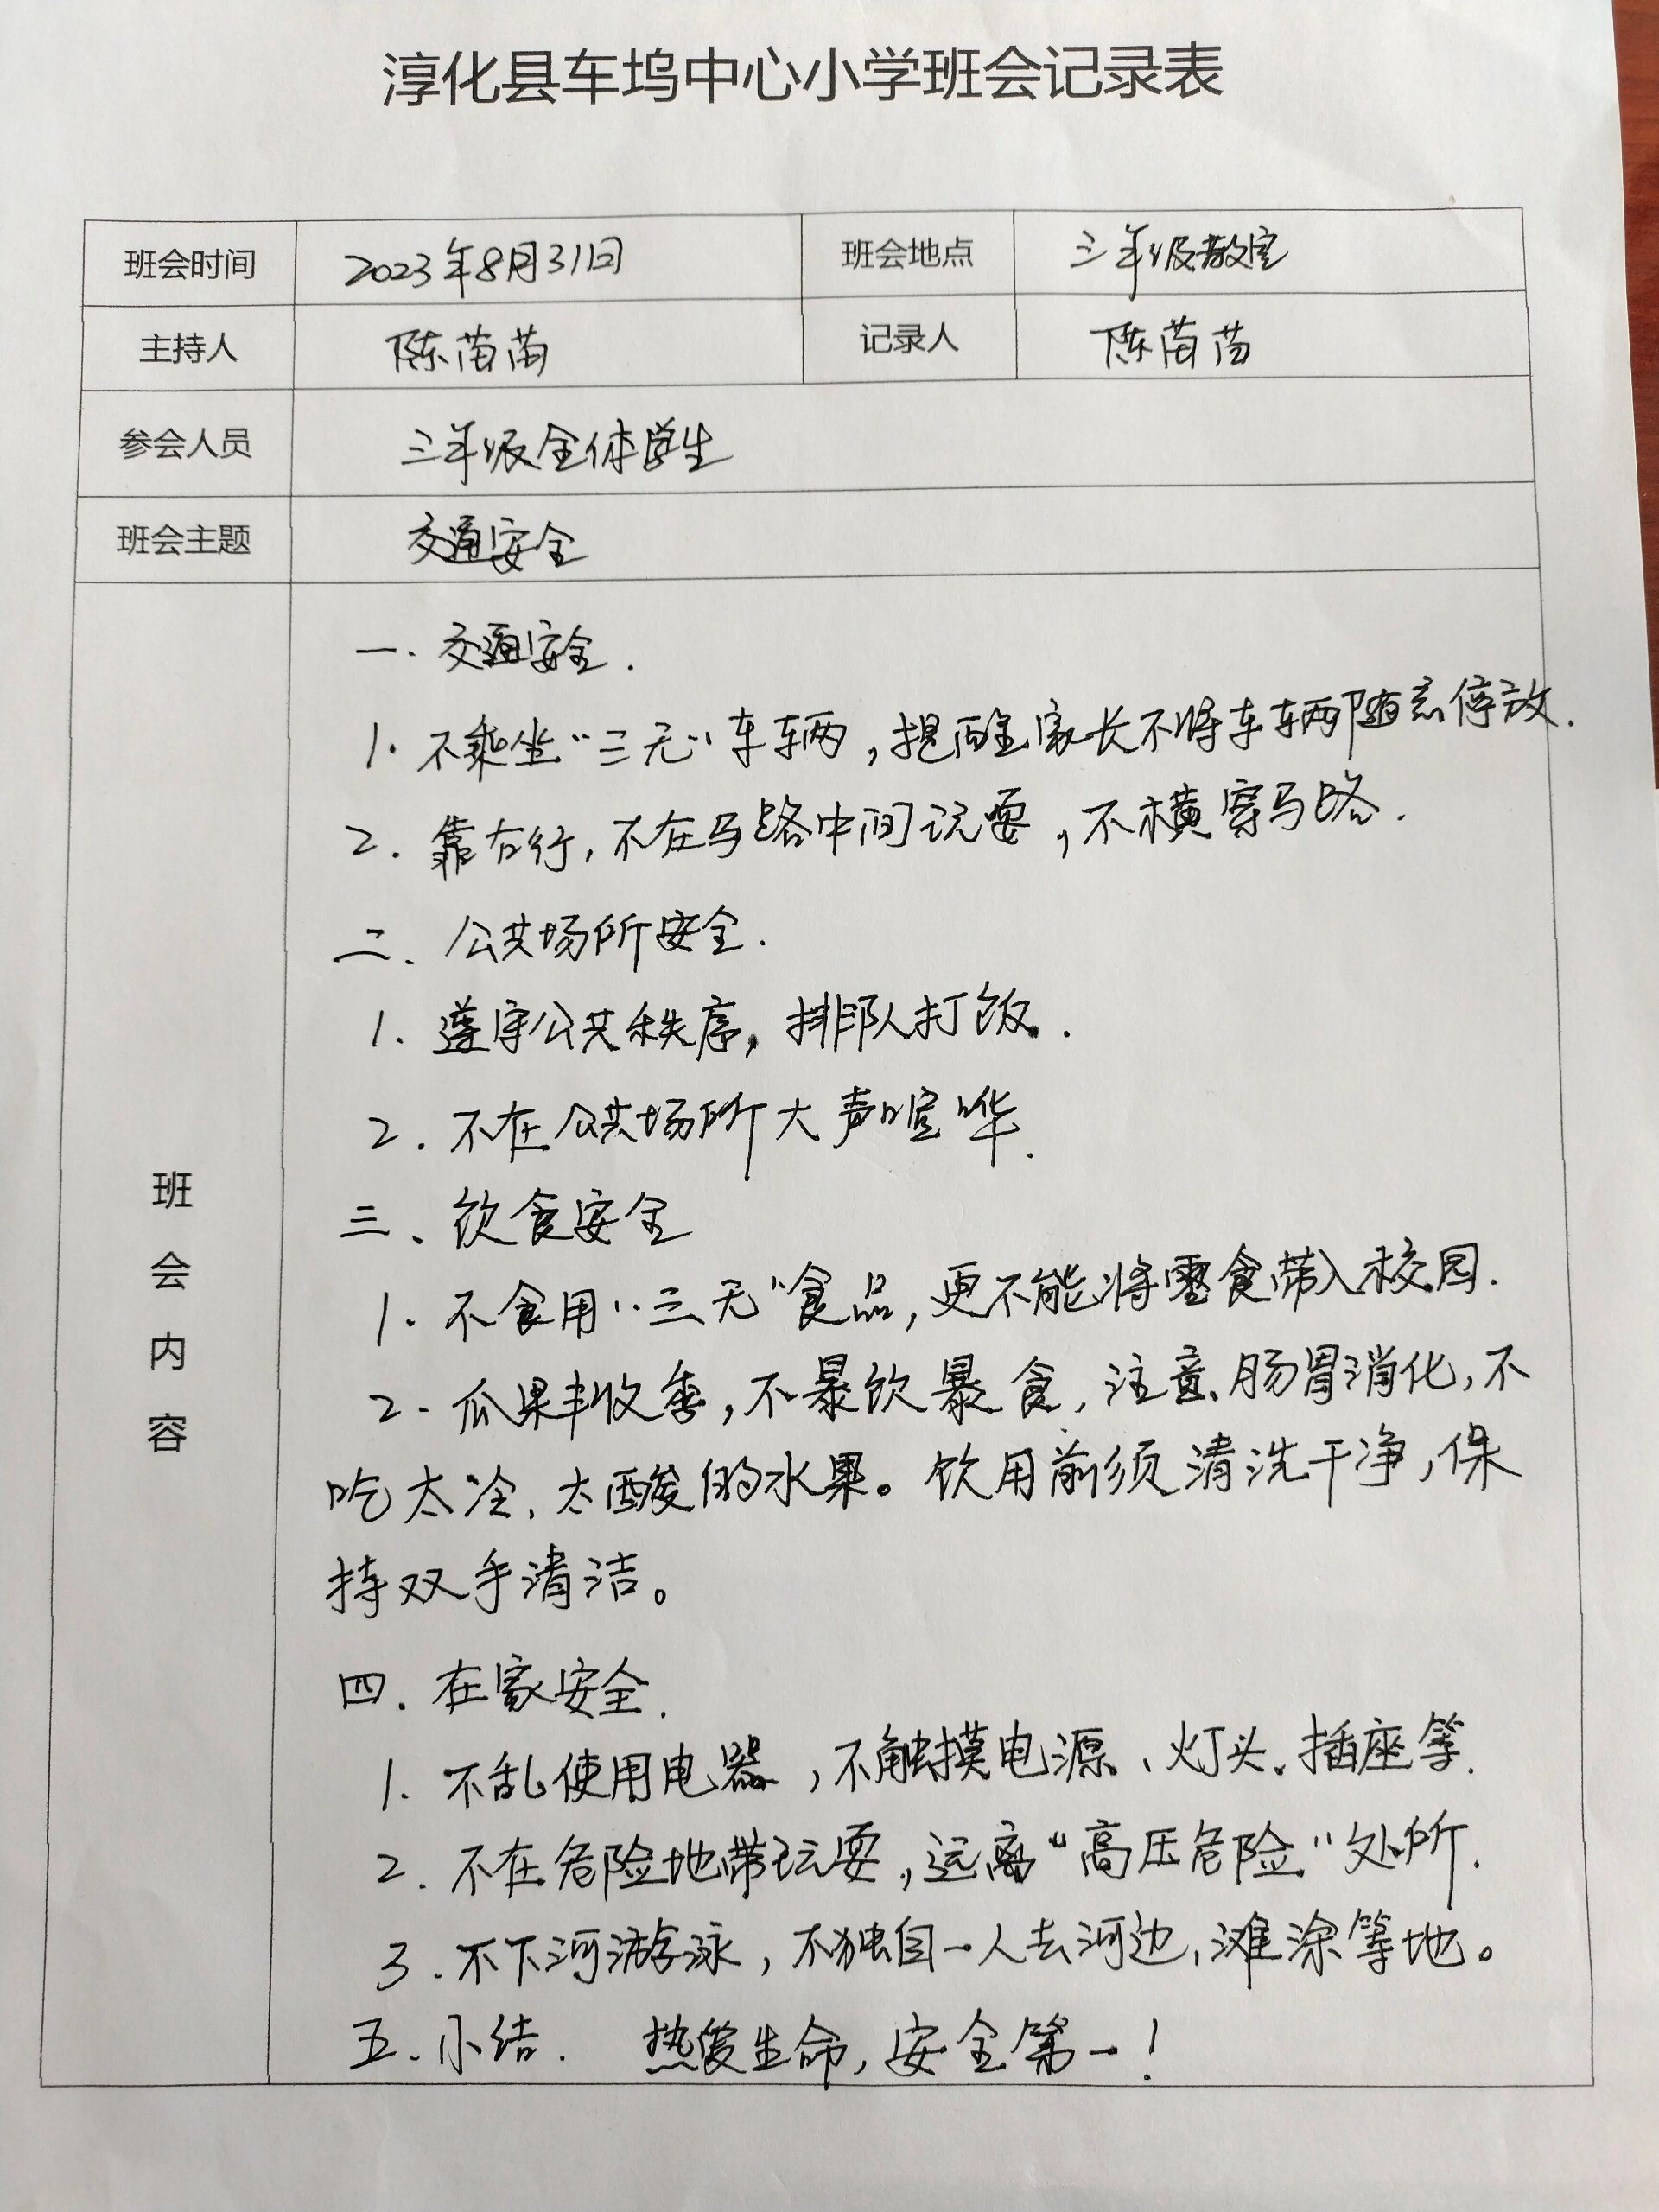 淳化县车坞中心小学班会记录表
班会时间 2023年8月31日 班会地点 三年级教室
主持人 陈苗苗 记录人 陈苗苗
参会人员 三年级全体学生
班会主题 交通安全
班会内容
一.交通安全.
1.不乘坐“三无”车辆,提醒家长不将车辆随意停放.
2.靠右行,不在马路中间玩耍,不横穿马路.
二、公共场所安全.
1.遵守公共秩序,排队打饭.
2.不在公共场所大声喧哗.
三、饮食安全
1.不食用“三无”食品,更不能将零食带入校园.
2.瓜果丰收季,不暴饮暴食,注意肠胃消化,不
吃太冷、太酸的水果。饮用前须清洗干净,保
持双手清洁。
四.在家安全.
1.不乱使用电器,不触摸电源、灯头、插座等.
2.不在危险地带玩耍,远离“高压危险”处所.
3.不下河游泳,不独自一人去河边,滩涂等地。
五.小结. 热爱生命,安全第一!